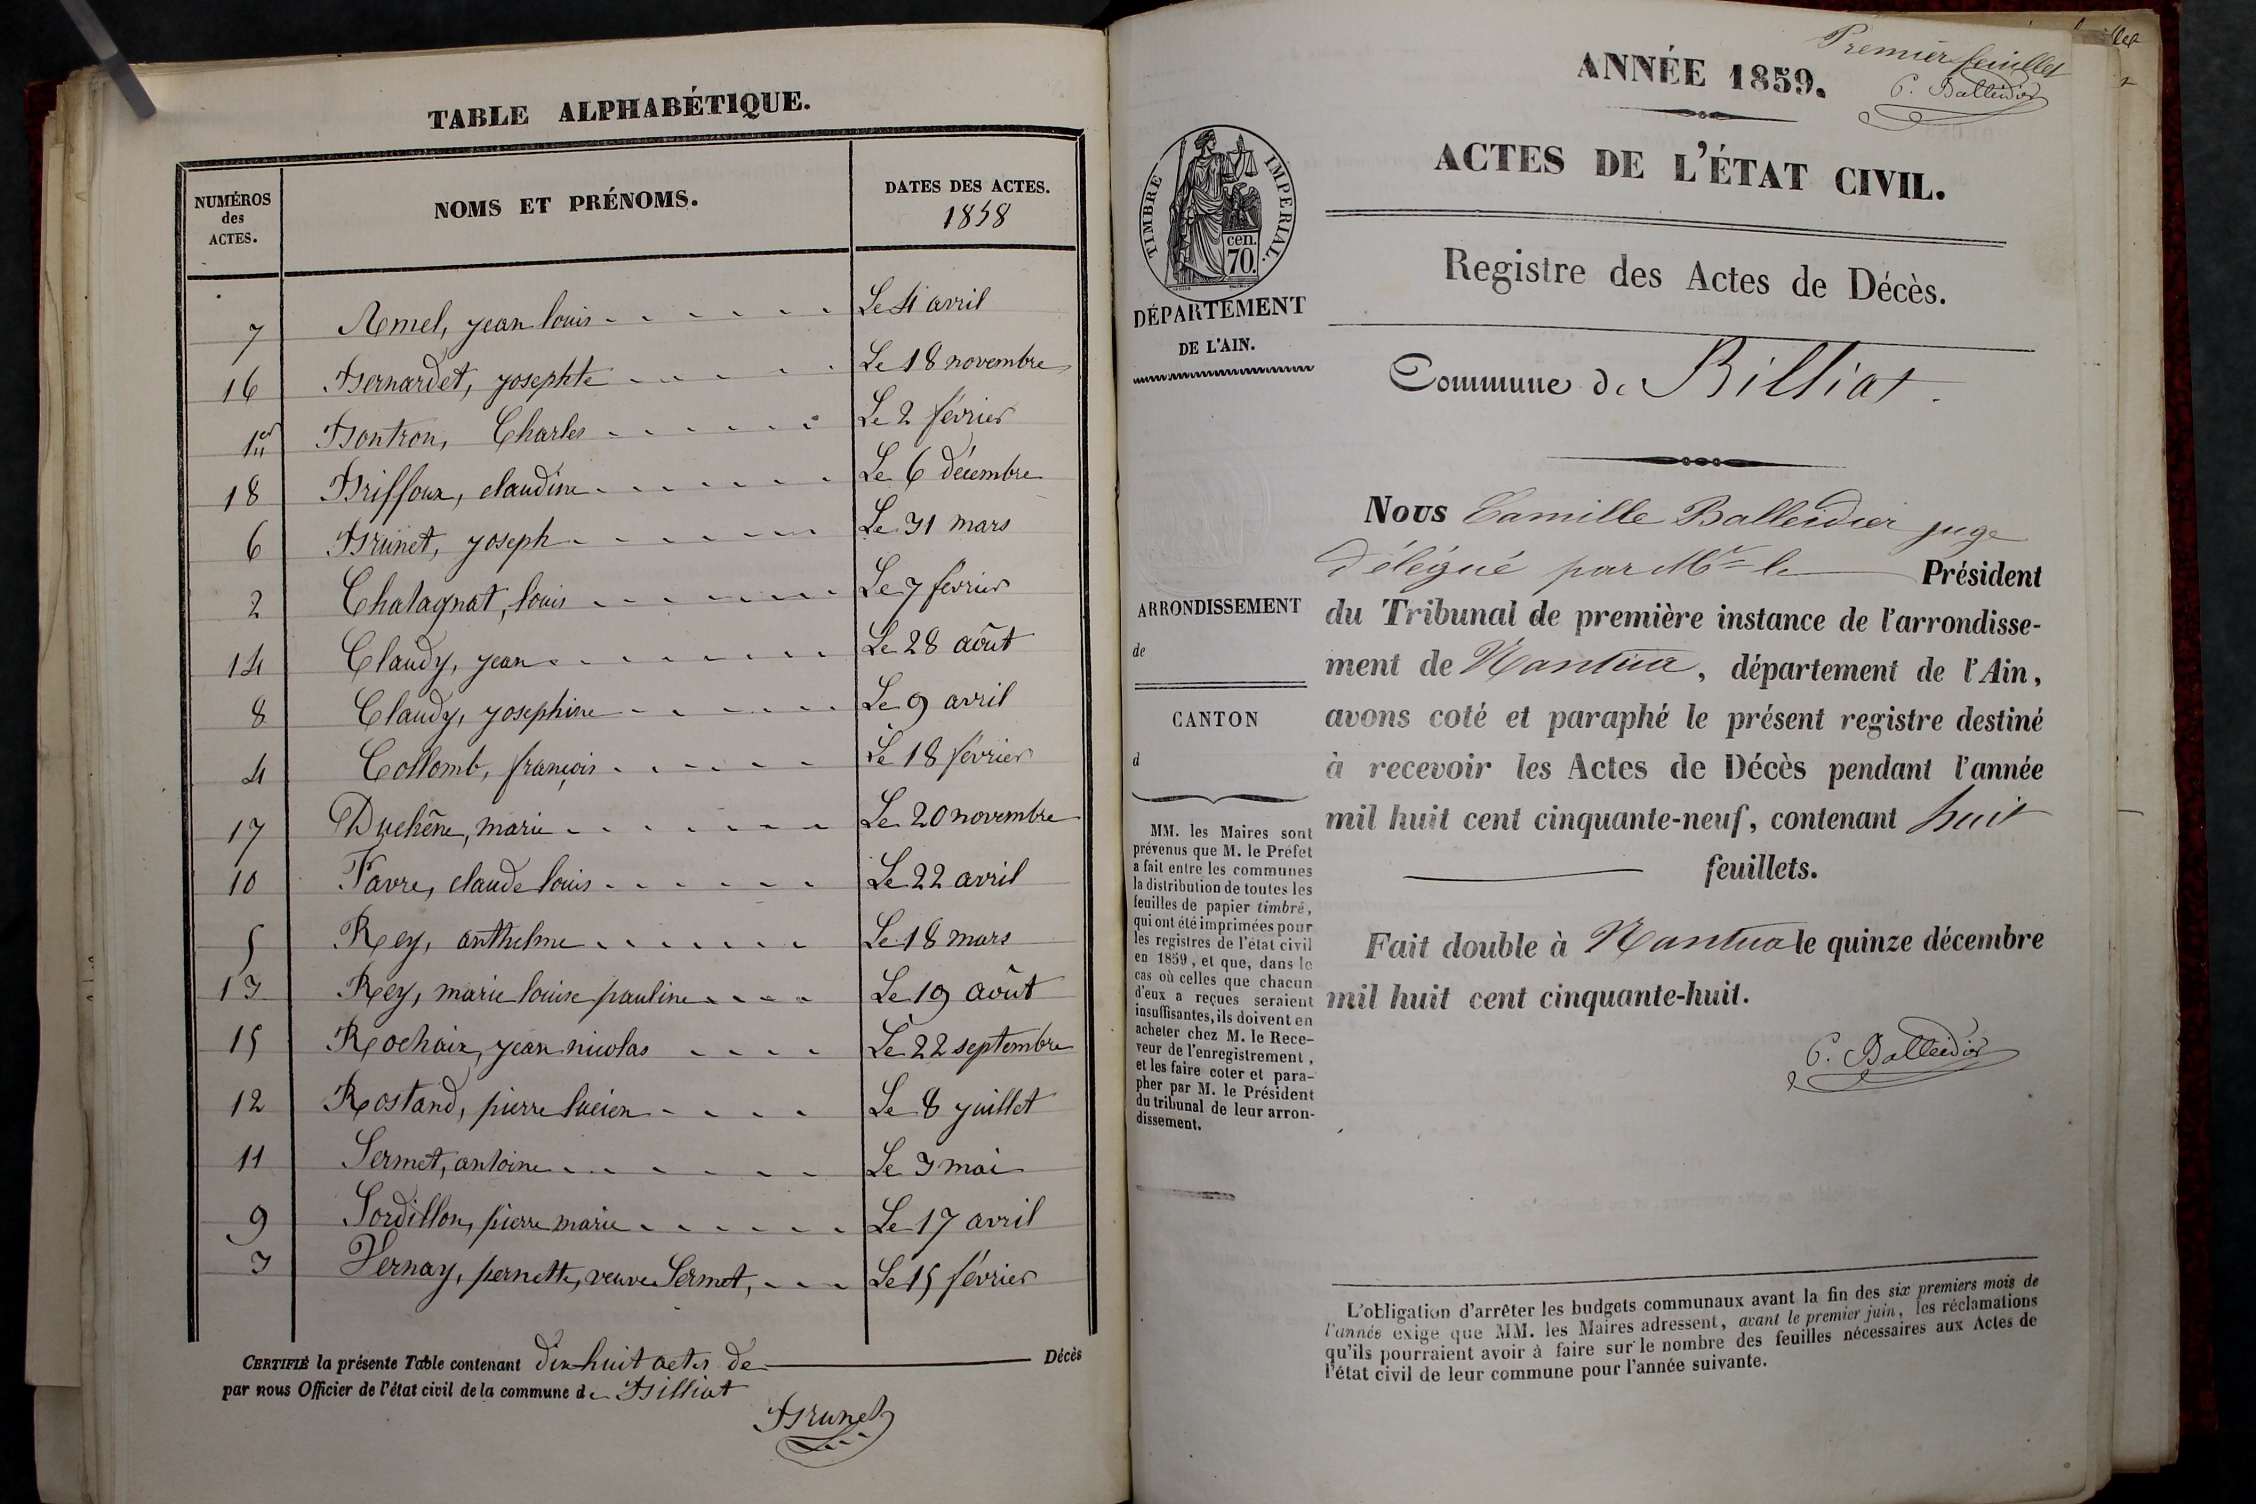 TABLE ALPHABÉTIQUE.
NUMÉROS
des
ACTES.
NOMS ET PRÉNOMS.
DATES DES ACTES.
1858
7 Amel, jean louis Le 4 avril
16 Bernardet, josephte Le 18 novembre
1er Bontron, Charles Le 2 février
18 Briffoux, claudine Le 6 décembre
6 Brunet, joseph Le 31 mars
2 Chatagnat, louis Le 7 février
14 Claudy, jean Le 28 août
8 Claudy, josephine Le 9 avril
4 Collomb, françois Le 18 février
17 Duchêne, marie Le 20 novembre
10 Favre, claude louis Le 22 avril
5 Rey, anthelme Le 18 mars
13 Rey, marie louise pauline Le 19 août
15 Rochaix, jean nicolas Le 22 septembre
12 Rostand, pierre lucien Le 8 juillet
11 Sermet, antoine Le 3 mai
9 Sordillon, pierre marie Le 17 avril
3 Vernay, pernette, veuve Sermet, Le 15 février
CERTIFIÉ la présente Table contenant dix huit actes de Décès
par nous Officier de l'état civil de la commune de Billiat
Brunet
Premier feuillet
C. Balleidier
ANNÉE 1859.
ACTES DE L'ÉTAT CIVIL.
Registre des Actes de Décès.
Commune de Billiat.
TIMBRE IMPERIAL.
cen.
70.
DÉPARTEMENT
DE L'AIN.
ARRONDISSEMENT
de
CANTON
d
MM. les Maires sont
prévenus que M. le Préfet
a fait entre les communes
la distribution de toutes les
feuilles de papier timbré,
qui ont été imprimées pour
les registres de l'état civil
en 1859, et que, dans le
cas où celles que chacun
d'eux a reçues seraient
insuffisantes, ils doivent en
acheter chez M. le Rece-
veur de l'enregistrement,
et les faire coter et para-
pher par M. le Président
du tribunal de leur arron-
dissement.
Nous Camille Balleidier juge
délégué par Mr le Président
du Tribunal de première instance de l'arrondisse-
ment de Nantua, département de l'Ain,
avons coté et paraphé le présent registre destiné
à recevoir les Actes de Décès pendant l'année
mil huit cent cinquante-neuf, contenant huit
feuillets.
Fait double à Nantua le quinze décembre
mil huit cent cinquante-huit.
C. Balleidier
L'obligation d'arrêter les budgets communaux avant la fin des six premiers mois de
l'année exige que MM. les Maires adressent, avant le premier juin, les réclamations
qu'ils pourraient avoir à faire sur le nombre des feuilles nécessaires aux Actes de
l'état civil de leur commune pour l'année suivante.